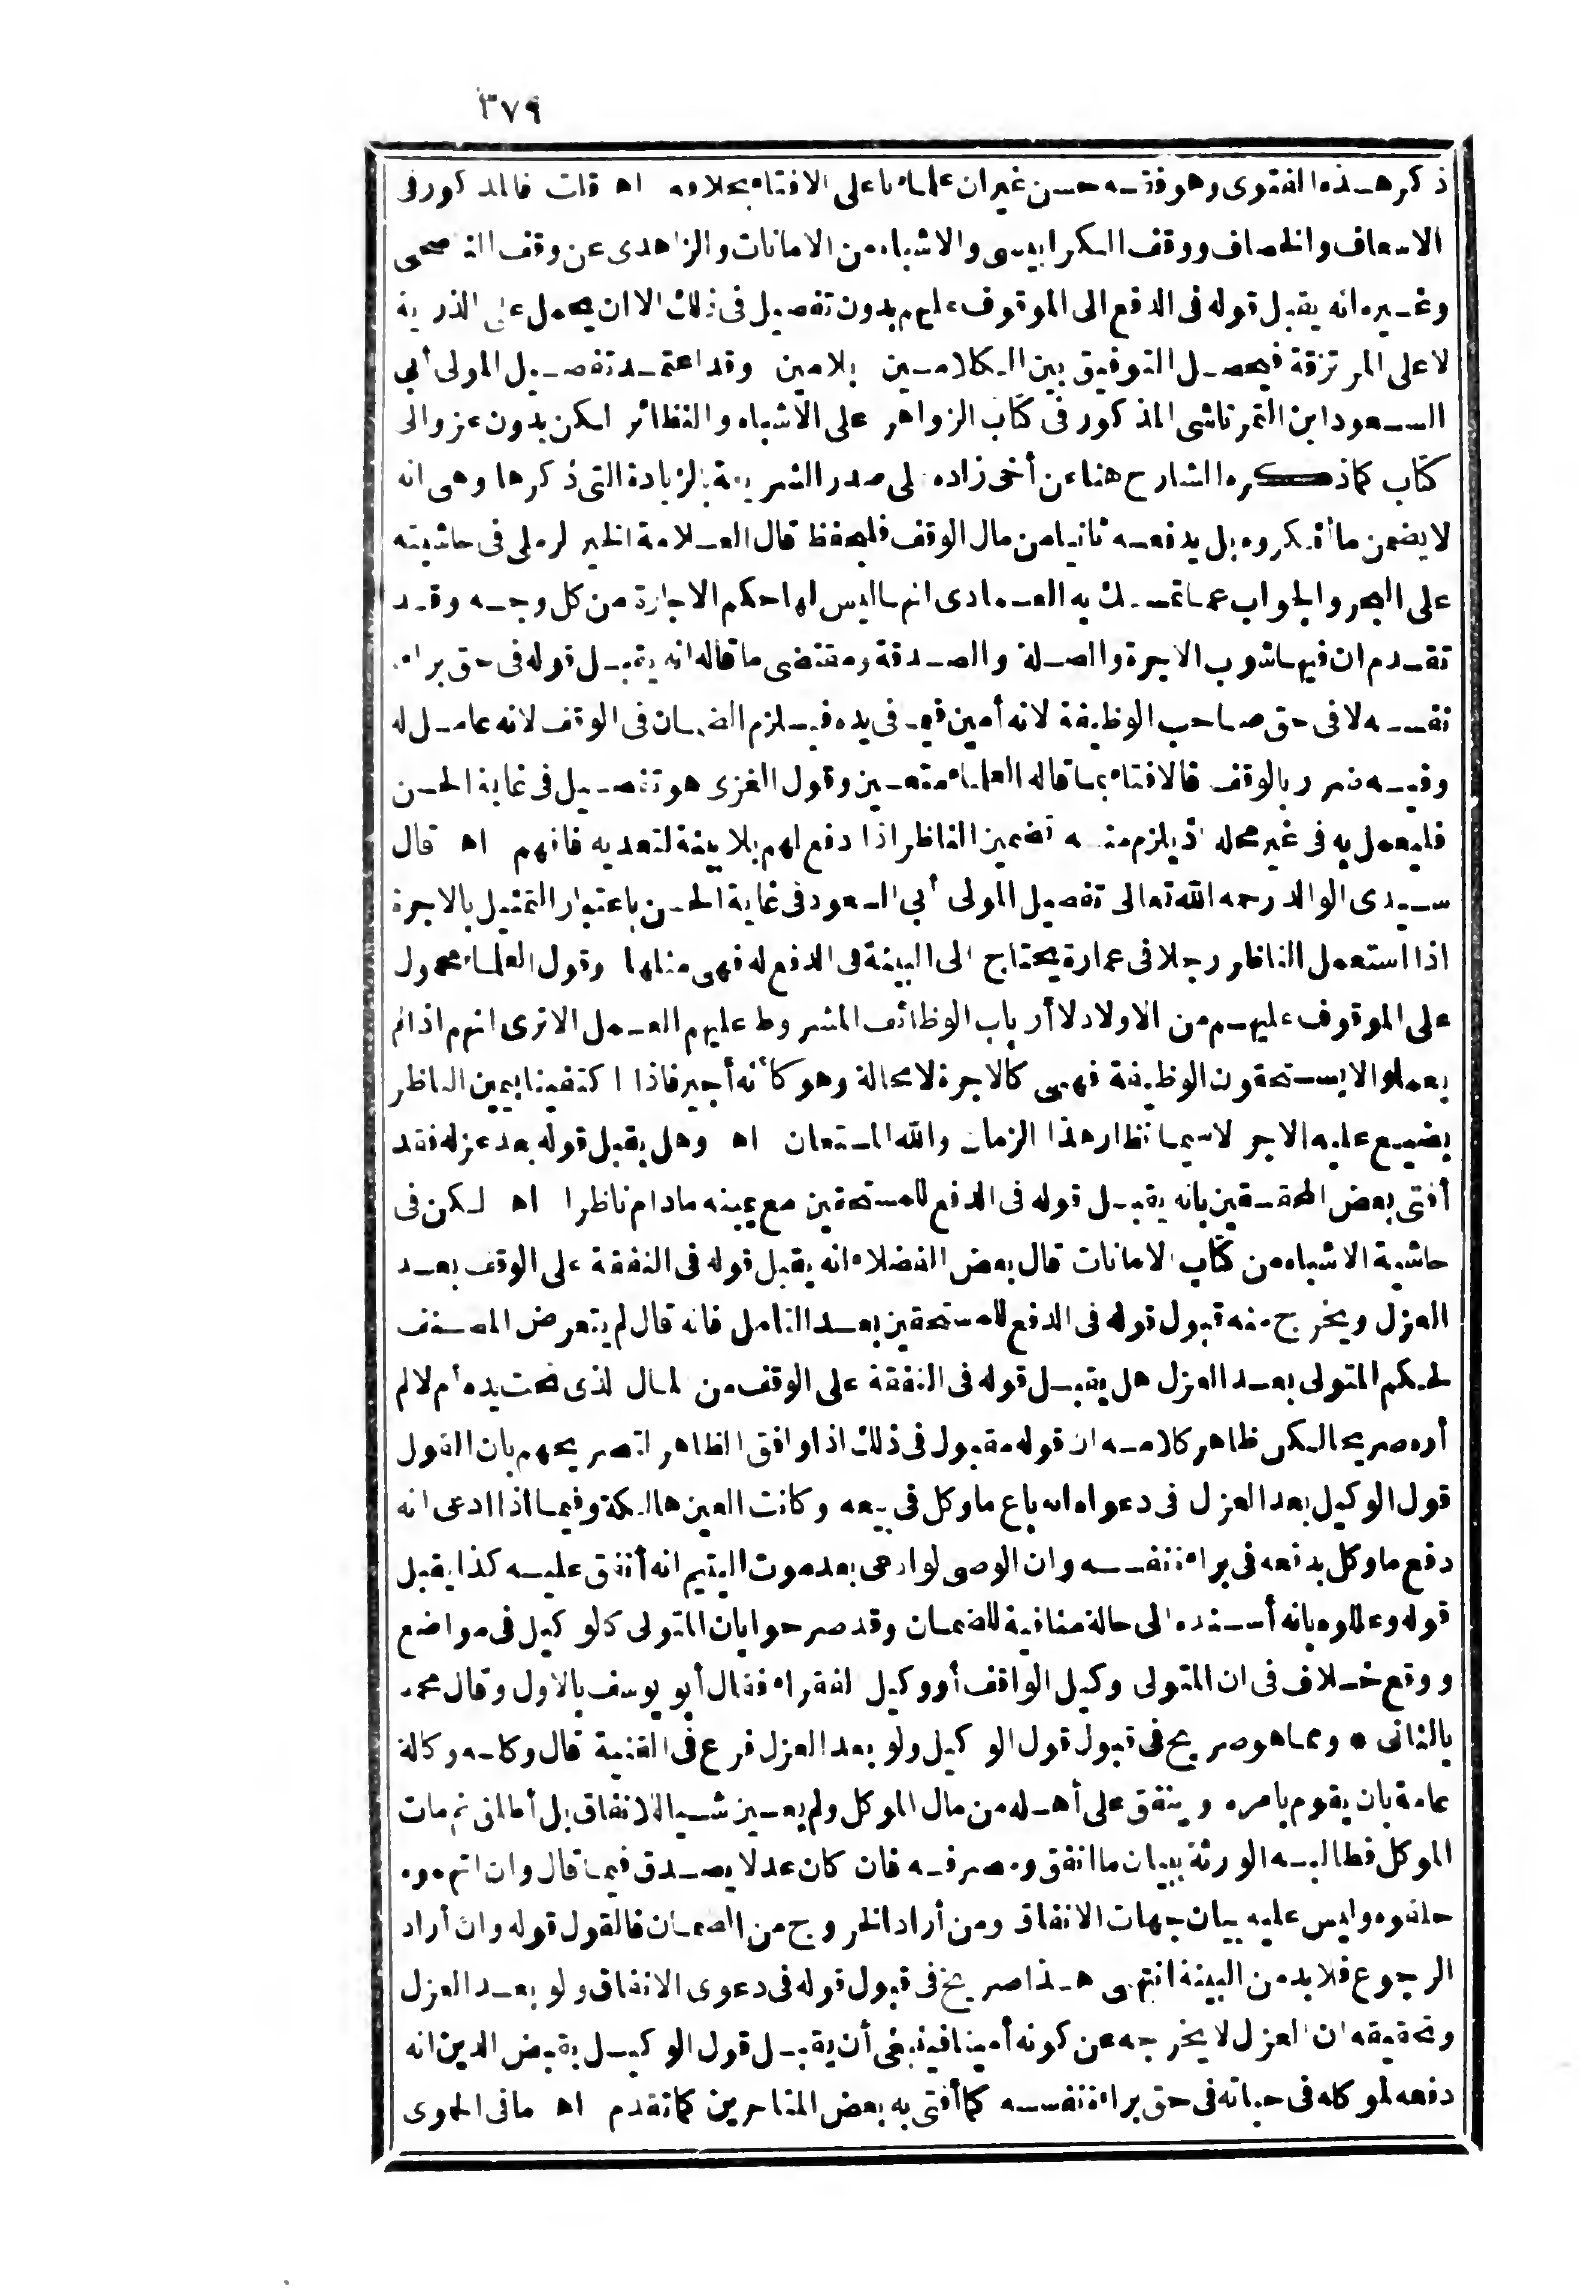 ٣٧٩
ذكر هذه الفتوى وهو فقه حسن غير ان علماءنا على الافتاء بخلافه اه قلت فالمذكور فى
الاسعاف والخصاف ووقف الكرابيسى والاشباه من الامانات والزاهدى عن وقف الناصحى
وغيره انه يقبل قوله فى الدفع الى الموقوف عليهم بدون تفصيل فى ذلك الا ان يحمل على الذرية
لا على المرتزقة فيحصل التوفيق بين الكلامين بلامين وقد اعتمد تفصيل المولى أبى
السعود ابن التمرتاشى المذكور فى كتاب الزواهر على الاشباه والنظائر لكن بدون عزو الى
كتاب كما ذكره الشارح هنا عن أخى زاده على صدر الشريعة بالزيادة التى ذكرها وهى انه
لا يضمن ما أنكروه بل يدفعه ثانيا من مال الوقف فليحفظ قال العلامة الخير الرملى فى حاشيته
على البحر والجواب عما تمسك به العمادى انها ليس لها حكم الاجارة من كل وجه وقد
تقدم ان فيها شوب الاجرة والصلة والصدقة ومقتضى ما قاله انه يقبل قوله فى حق براءة
نفسه لا فى حق صاحب الوظيفة لانه أمين فيما فى يده فيلزم الضمان فى الوقف لانه عامل له
وفيه ضرر بالوقف فالافتاء بما قاله العلماء متعين وقول الغزى هو تفصيل فى غاية الحسن
فليعمل به فى غير محله اذ يلزم منه تضمين الناظر اذا دفع لهم بلا بينة لتعديه فافهم اه قال
سيدى الوالد رحمه الله تعالى تفصيل المولى أبى السعود فى غاية الحسن باعتبار التمثيل بالاجرة
اذا استعمل الناظر رجلا فى عمارة يحتاج الى البينة فى الدفع له فهى مثلها وقول العلماء محمول
على الموقوف عليهم من الاولاد لا أرباب الوظائف المشروط عليهم العمل الا ترى انهم اذا لم
يعملوا لا يستحقون الوظيفة فهى كالاجرة لا محالة وهو كأنه أجير فاذا اكتفينا بيمين الناظر
يضيع عليه الاجر لا سيما نظار هذا الزمان والله المستعان اه وهل يقبل قوله بعد عزله فقد
أفتى بعض المحققين بانه يقبل قوله فى الدفع للمستحقين مع يمينه ما دام ناظرا اه لكن فى
حاشية الاشباه من كتاب الامانات قال بعض الفضلاء انه يقبل قوله فى النفقة على الوقف بعد
العزل ويخرج منه قبول قوله فى الدفع للمستحقين بعد التأمل فانه قال لم يتعرض المصنف
لحكم المتولى بعد العزل هل يقبل قوله فى النفقة على الوقف من المال الذى تحت يده أم لا لم
أره صريحا لكن ظاهر كلامه ان قوله مقبول فى ذلك اذا وافق الظاهر لتصريحهم بان القول
قول الوكيل بعد العزل فى دعواه انه باع ما وكل فى بيعه وكانت العين هالكة وفيما اذا ادعى انه
دفع ما وكل بدفعه فى براءة نفسه وان الوصى لو ادعى بعد موت اليتيم انه أنفق عليه كذا يقبل
قوله وعللوه بانه أسنده الى حالة منافية للضمان وقد صرحوا بان المتولى كالوكيل فى مواضع
ووقع خلاف فى ان المتولى وكيل الواقف أو وكيل الفقراء فقال أبو يوسف بالاول وقال محمد
بالثانى * ومما هو صريح فى قبول قول الوكيل ولو بعد العزل فرع فى القنية قال وكله وكالة
عامة بان يقوم بامره وينفق على أهله من مال الموكل ولم يعين شيا للانفاق بل أطلق ثم مات
الموكل فطالبه الورثة ببيان ما انفق ومصرفه فان كان عدلا يصدق فيما قال وان اتهموه
حلفوه وليس عليه بيان جهات الانفاق ومن أراد الخروج من الضمان فالقول قوله وان أراد
الرجوع فلا بد من البينة انتهى هذا صريح فى قبول قوله فى دعوى الانفاق ولو بعد العزل
وتحقيقه ان العزل لا يخرجه عن كونه أمينا فينبغى أن يقبل قول الوكيل بقبض الدين انه
دفعه لموكله فى حياته فى حق براءة نفسه كما أفتى به بعض المتاخرين كما تقدم اه ما فى الحموى